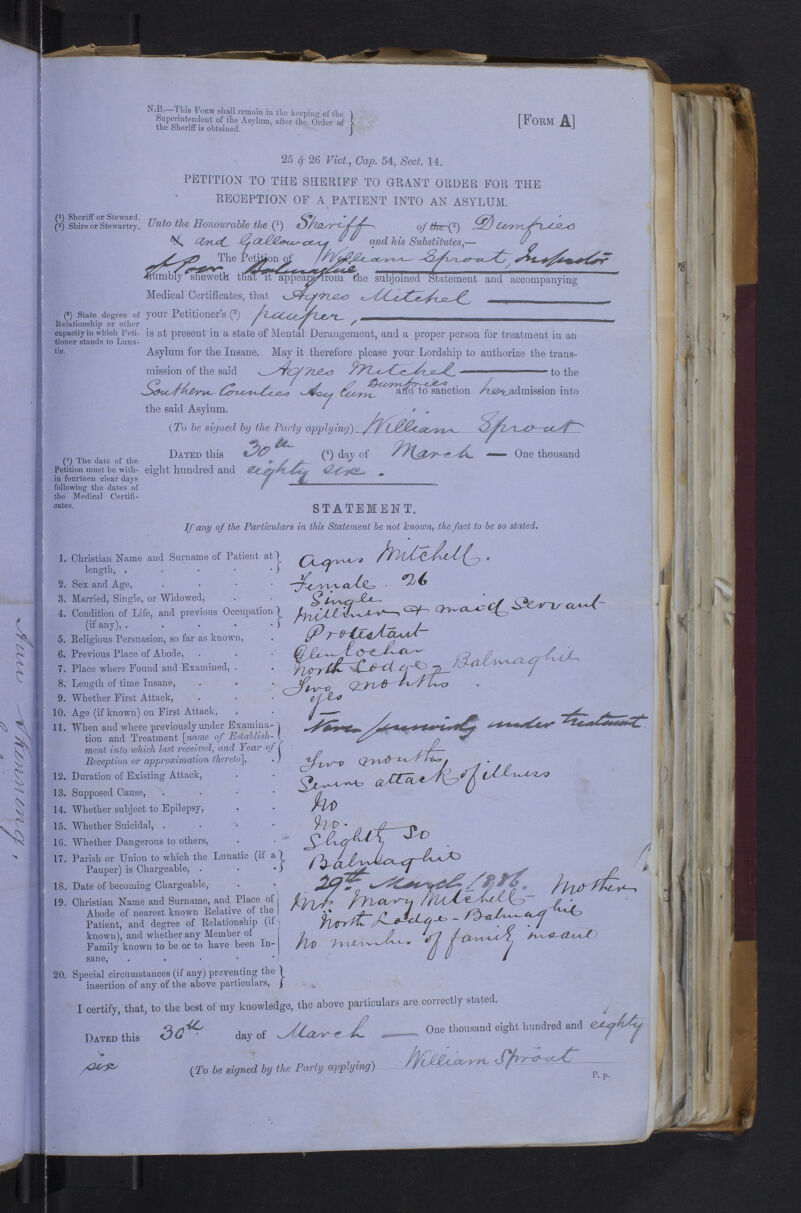 N.B.—This Form shall remain in the keeping of the
Superintendent of the Asylum, after the Order of
the Sheriff is obtained.
[Form A]
25 & 26 Vict., Cap. 54, Sect. 14.
PETITION TO THE SHERIFF TO GRANT ORDER FOR THE
RECEPTION OF A PATIENT INTO AN ASYLUM.
(1) Sheriff or Steward.
(2) Shire or Stewartry.
Unto the Honourable the (1) Sheriff of the (2) Dumfries
& and Galloway and his Substitutes,—
The Petition of William Sproat, Inspector
of Poor Balmaghie
humbly sheweth that it appears from the subjoined Statement and accompanying
Medical Certificates, that Agnes Mitchel
(3) State degree of
Relationship or other
capacity in which Peti-
tioner stands to Luna-
tic.
your Petitioner's (3) pauper,
is at present in a state of Mental Derangement, and a proper person for treatment in an
Asylum for the Insane. May it therefore please your Lordship to authorize the trans-
mission of the said Agnes Mitchel to the
Southern Counties Asylum Dumfries and to sanction her admission into
the said Asylum.
(To be signed by the Party applying) William Sproat
(4) The date of the
Petition must be with-
in fourteen clear days
following the dates of
the Medical Certifi-
cates.
Dated this 30th (4) day of March — One thousand
eight hundred and eighty six.
STATEMENT.
If any of the Particulars in this Statement be not known, the fact to be so stated.
1. Christian Name and Surname of Patient at
length, . Agnes Mitchell.
2. Sex and Age, Female. 26
3. Married, Single, or Widowed, Single
4. Condition of Life, and previous Occupation
(if any), . Milliner & maid Servant
5. Religious Persuasion, so far as known, Protestant
6. Previous Place of Abode, Glenlochar
7. Place where Found and Examined, . North Lodge - Balmaghie
8. Length of time Insane, Two months.
9. Whether First Attack, Yes
10. Age (if known) on First Attack,
11. When and where previously under Examina-
tion and Treatment [name of Establish-
ment into which last received, and Year of
Reception or approximation thereto], Never previously under treatment
12. Duration of Existing Attack, Two months
13. Supposed Cause, Severe attack of illness
14. Whether subject to Epilepsy, No
15. Whether Suicidal, . No.
16. Whether Dangerous to others, Slightly So
17. Parish or Union to which the Lunatic (if a
Pauper) is Chargeable, . Balmaghie
18. Date of becoming Chargeable, 29th March 1886.
19. Christian Name and Surname, and Place of
Abode of nearest known Relative of the
Patient, and degree of Relationship (if
known), and whether any Member of
Family known to be or to have been In-
sane, Mrs Mary Mitchell - Mother
North Lodge - Balmaghie
No member of family insane
20. Special circumstances (if any) preventing the
insertion of any of the above particulars,
I certify, that, to the best of my knowledge, the above particulars are correctly stated.
Dated this 30th day of March — One thousand eight hundred and eighty
six (To be signed by the Party applying) William Sproat
P. p.